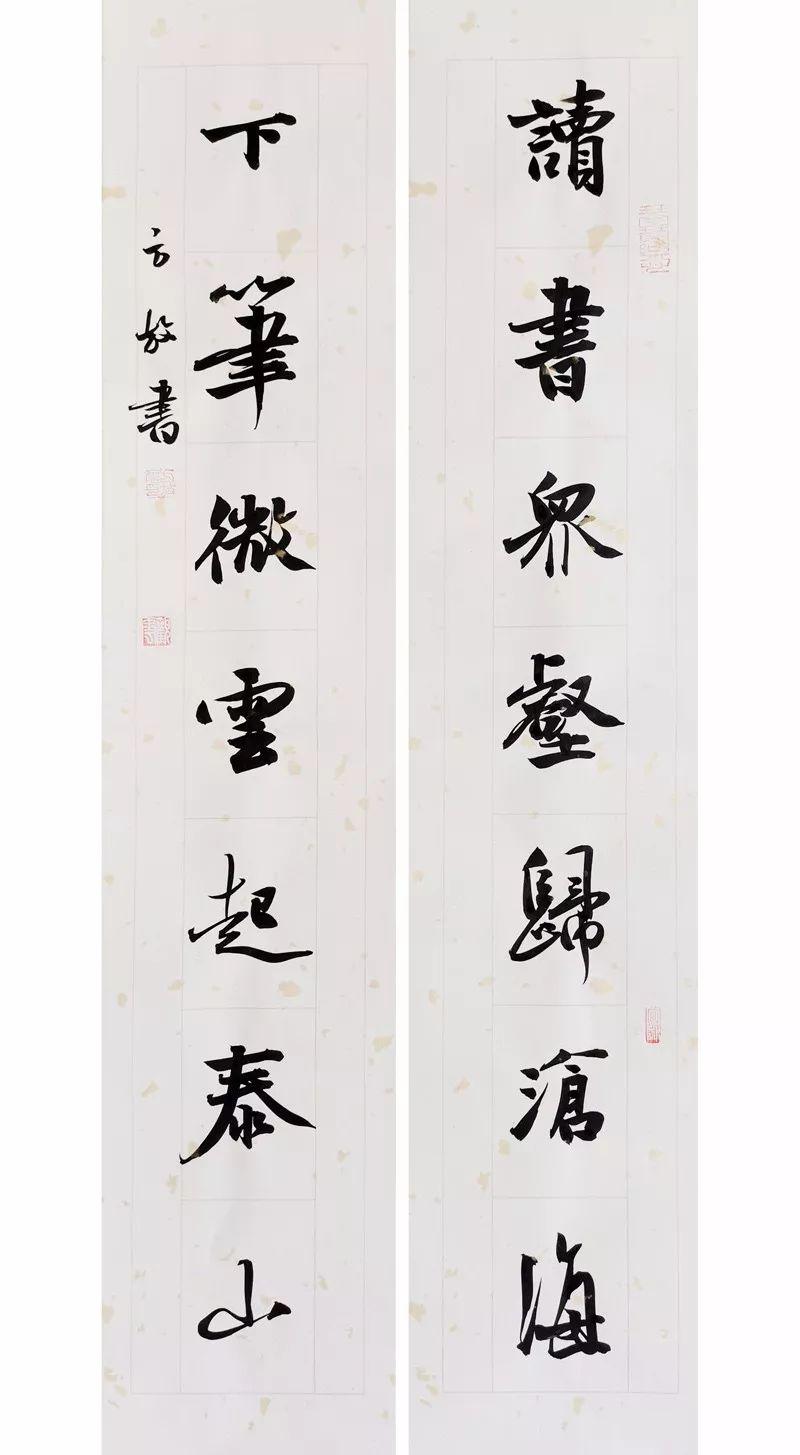 讀書衆壑歸滄海
下筆微雲起泰山
方放書